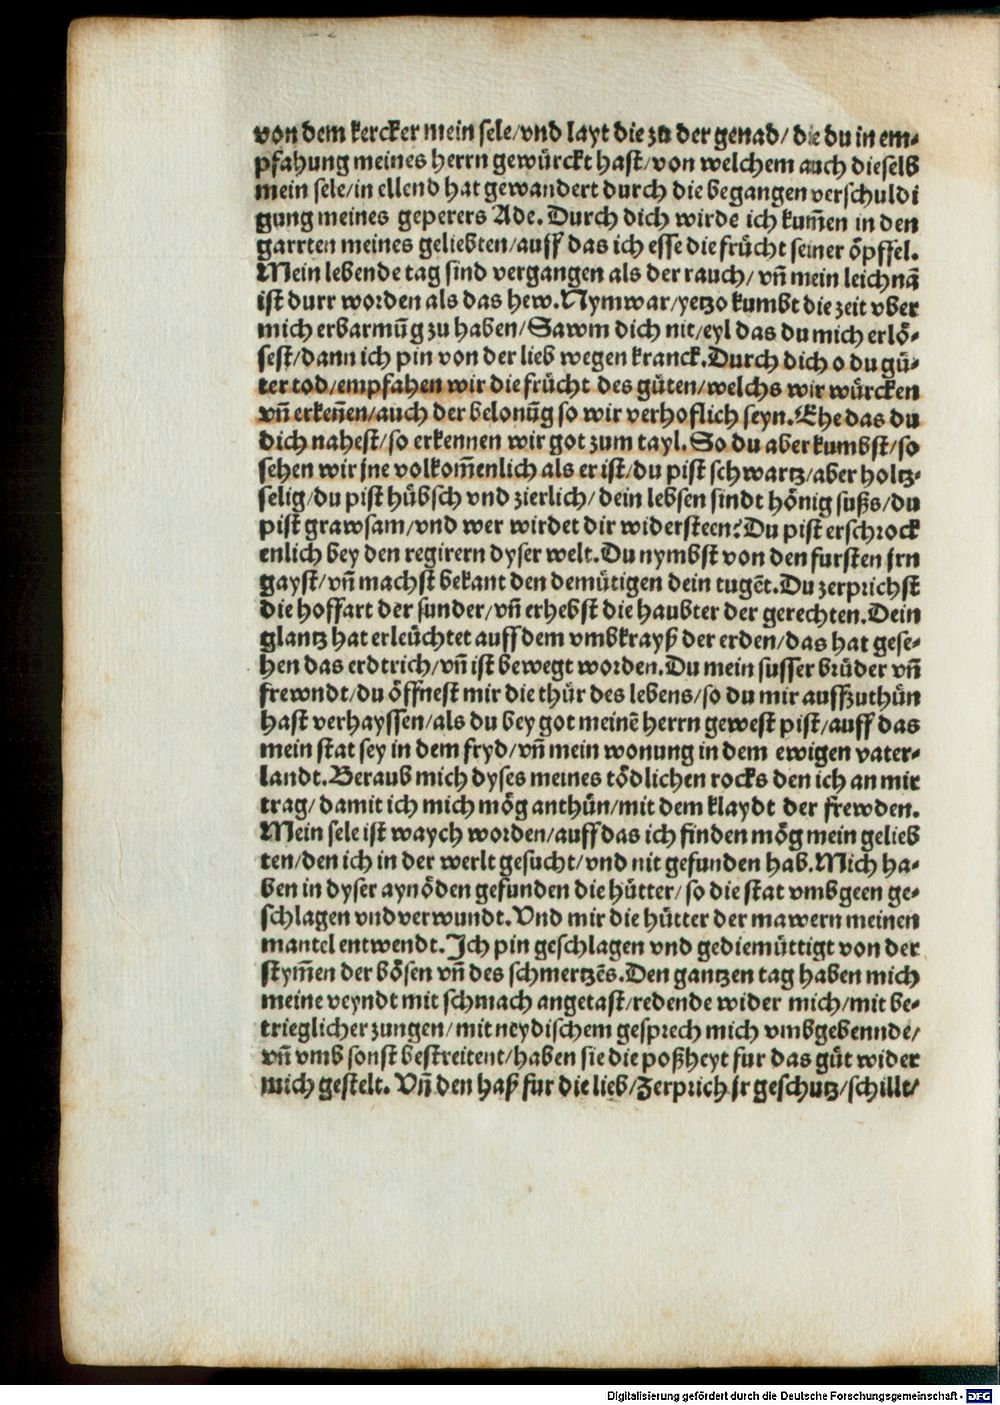 von dem kercker mein sele/vnd layt die zu der genad/ die du in em-
pfahung meines herrn gewürckt hast/von welchem auch dieselb
mein sele/in ellend hat gewandert durch die begangen verschuldi
gung meines geperers Ade. Durch dich wirde ich kum̄en in den
garrten meines geliebten/auff das ich esse die frücht seiner öpffel.
Mein lebende tag sind vergangen als der rauch/ vn̄ mein leichnā
ist durr worden als das hew. Nym war/yetzo kumbt die zeit vber
mich erbarmūg zu haben/Sawm dich nit/eyl das du mich erlö-
sest/dann ich pin von der lieb wegen kranck. Durch dich o du gü-
ter tod/empfahen wir die frücht des güten/welchs wir würcken
vn̄ erken̄en/auch der belonūg so wir verhoflich seyn. Ehe das du
dich nahest/so erkennen wir got zum tayl. So du aber kumbst/so
sehen wir jne volkom̄enlich als er ist/du pist schwartz/aber holtz-
selig/du pist hübsch vnd zierlich/ dein lebsen sindt hönig sußs/du
pist grawsam/vnd wer wirdet dir widersteen? Du pist erschrock
enlich bey den regirern dyser welt. Du nymbst von den fursten jrn
gayst/vn̄ machst bekant den demütigen dein tugēt. Du zerprichst
die hoffart der sunder/vn̄ erhebst die haubter der gerechten. Dein
glantz hat erleüchtet auff dem vmbkrayß der erden/das hat gese-
hen das erdtrich/vn̄ ist bewegt worden. Du mein susser brüder vn̄
frewndt/du öffnest mir die thür des lebens/so du mir auffzuthün
hast verhayssen/als du bey got meinē herrn gewest pist/auff das
mein stat sey in dem fryd/vn̄ mein wonung in dem ewigen vater-
landt. Beraub mich dyses meines tödlichen rocks den ich an mir
trag/ damit ich mich mög anthün/mit dem klaydt der frewden.
Mein sele ist waych worden/auff das ich finden mög mein gelieb
ten/den ich in der werlt gesucht/vnd nit gefunden hab. Mich ha-
ben in dyser aynöden gefunden die hütter/ so die stat vmbgeen ge-
schlagen vnd verwundt. Vnd mir die hütter der mawern meinen
mantel entwendt. Ich pin geschlagen vnd gediemüttigt von der
stym̄en der bösen vn̄ des schmertzēs. Den gantzen tag haben mich
meine veyndt mit schmach angetast/redende wider mich/mit be-
trieglicher zungen/ mit neydischem gesprech mich vmbgebennde/
vn̄ vmb sonst bestreitent/haben sie die poßheyt fur das güt wider
mich gestelt. Vn̄ den haß fur die lieb/Zerprich jr geschutz/schillt/
Digitalisierung gefördert durch die Deutsche Forschungsgemeinschaft - DFG